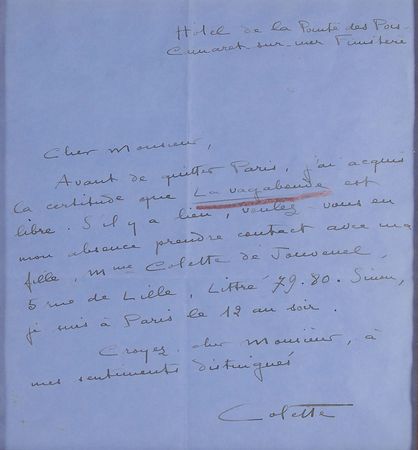 Hôtel de la Pointe des Pois
Camaret-sur-mer Finistère
Cher Monsieur,
Avant de quitter Paris, j'ai acquis
la certitude que La vagabonde est
libre. S'il y a lieu, voulez-vous en
mon absence prendre contact avec ma
fille, Mme Colette de Jouvenel,
5 rue de Lille, Littré 79.80. Sinon,
je suis à Paris le 12 au soir.
Croyez, cher Monsieur, à
mes sentiments distingués
Colette